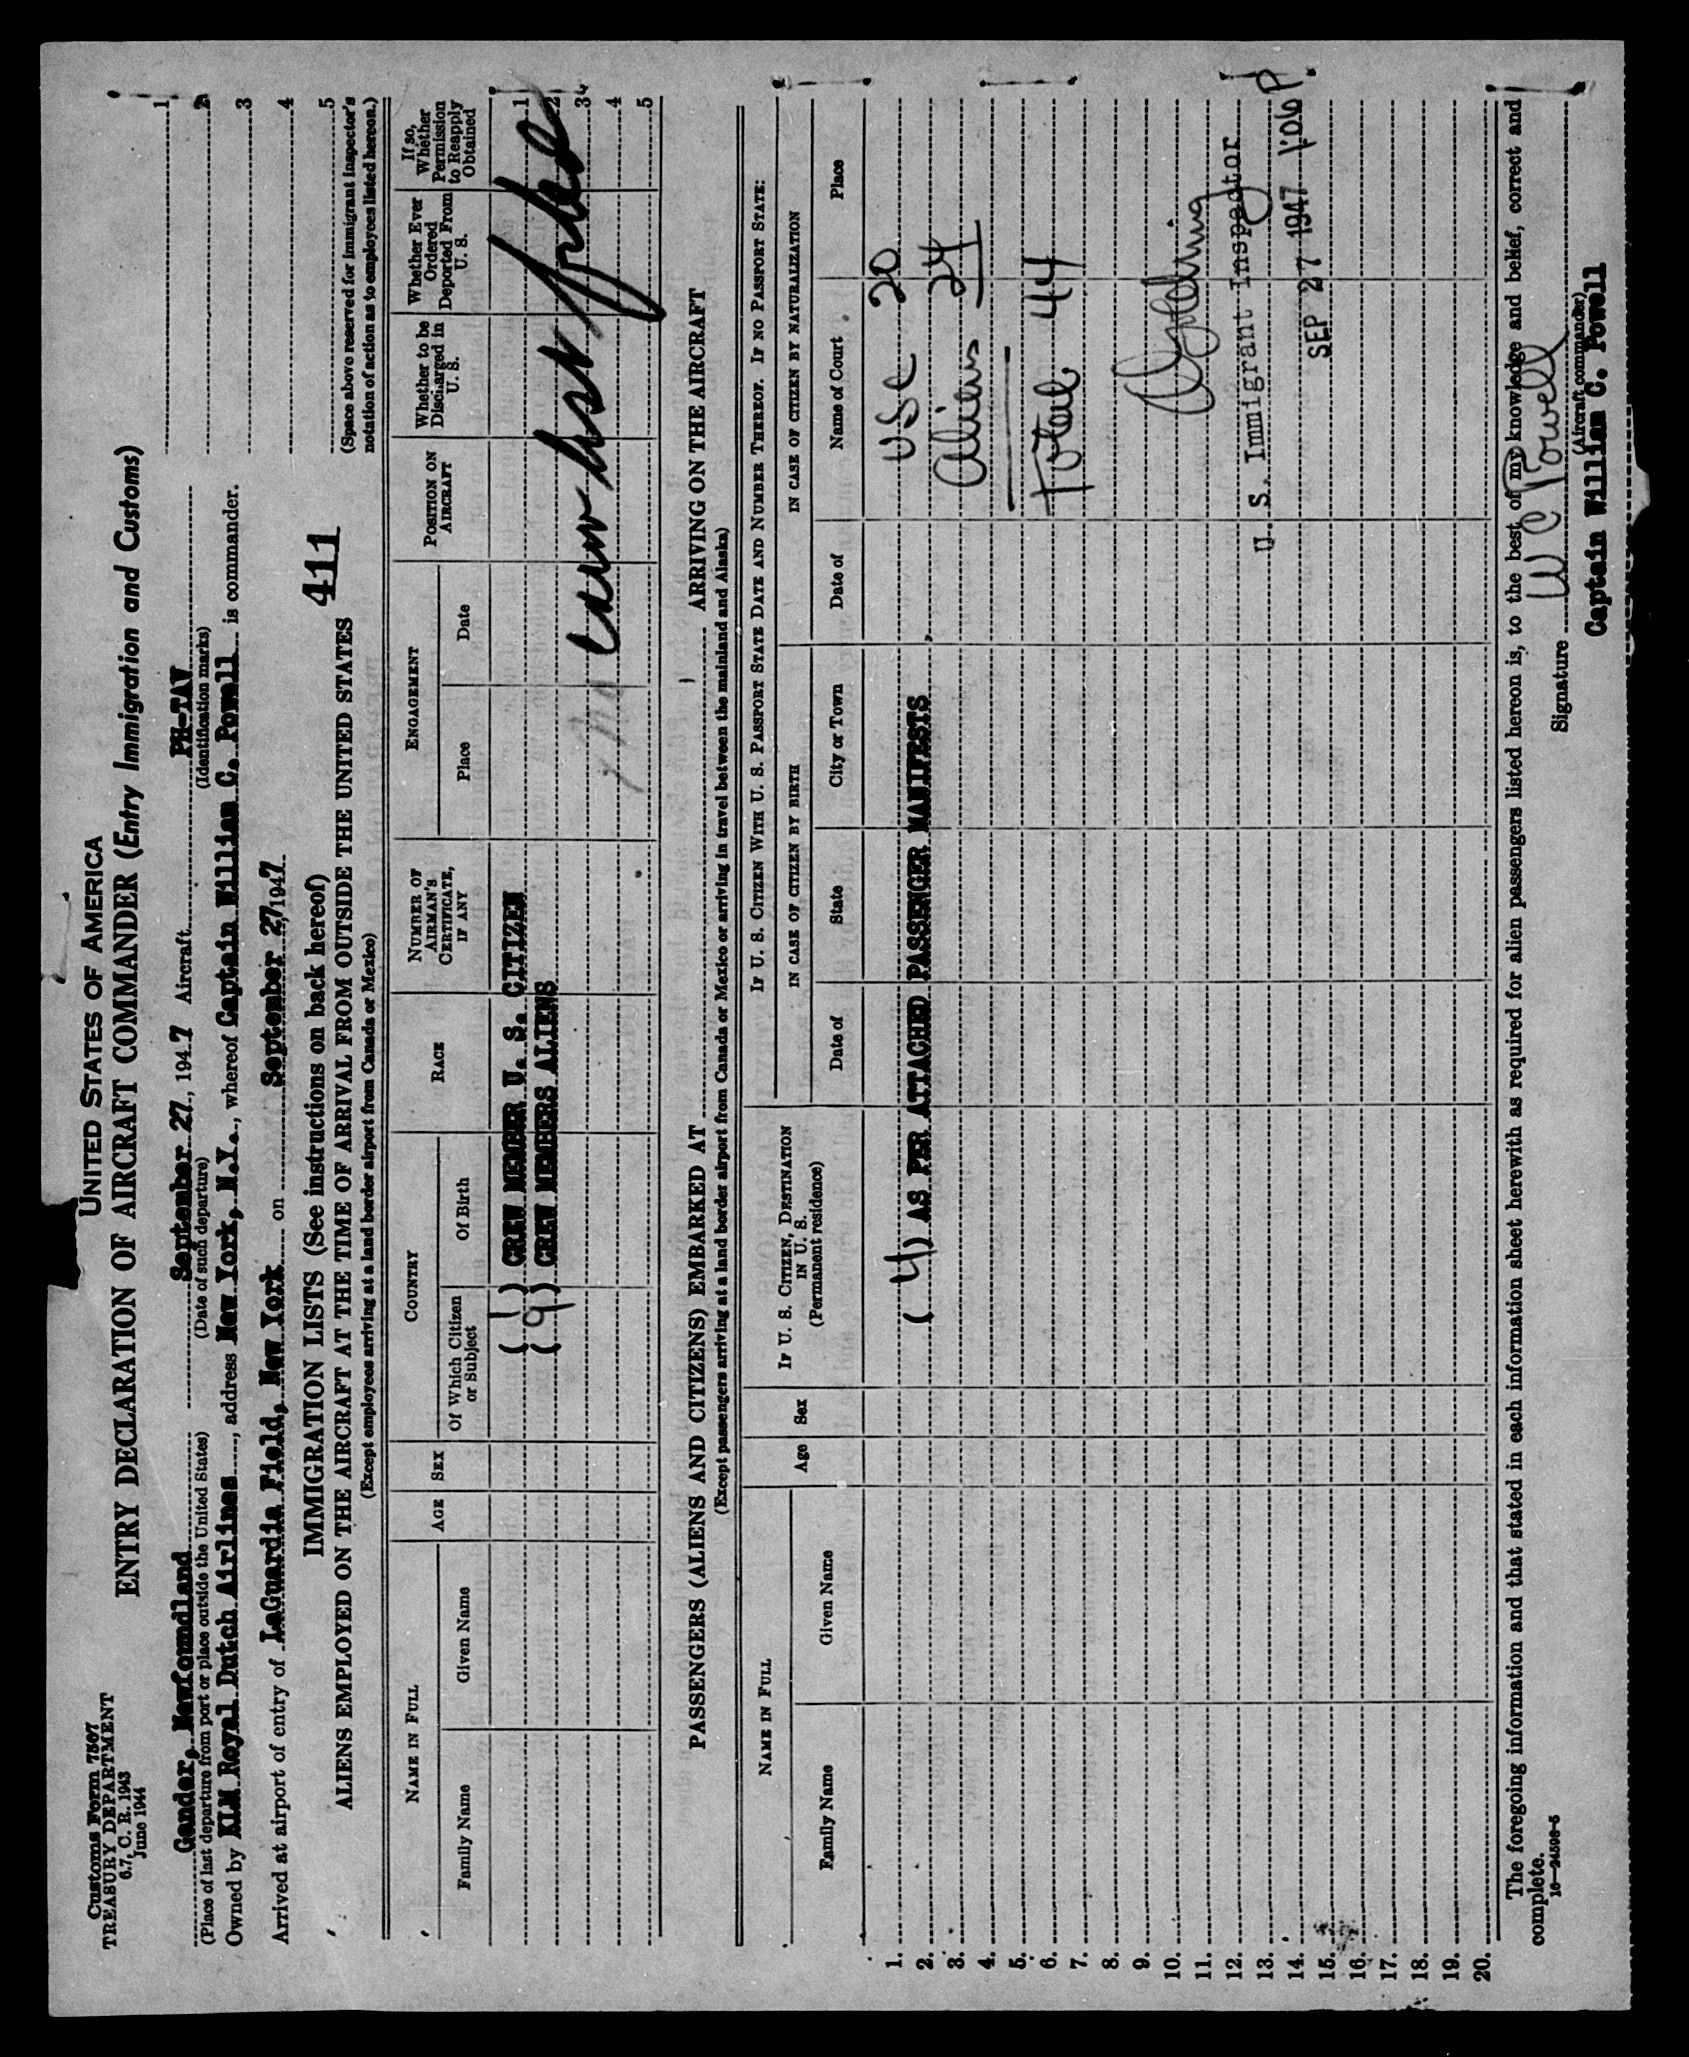 Customs Form 7507
TREASURY DEPARTMENT
6.7, C. R. 1943
June 1944
UNITED STATES OF AMERICA
ENTRY DECLARATION OF AIRCRAFT COMMANDER (Entry Immigration and Customs)
Gander, Newfoundland September 27, 1947 Aircraft PH-TAV
(Place of last departure from port or place outside the United States) (Date of such departure) (Identification marks)
Owned by KLM Royal Dutch Airlines, address New York, N.Y., whereof Captain William C. Powell is commander.
Arrived at airport of entry of LaGuardia Field, New York on September 27, 1947
1
2
3
4
5
(Space above reserved for immigrant inspector's
notation of action as to employees listed hereon.)
411
IMMIGRATION LISTS (See instructions on back hereof)
ALIENS EMPLOYED ON THE AIRCRAFT AT THE TIME OF ARRIVAL FROM OUTSIDE THE UNITED STATES
(Except employees arriving at a land border airport from Canada or Mexico)
NAME IN FULL
Family Name Given Name
AGE
SEX
COUNTRY
Of Which Citizen or Subject
Of Birth
RACE
NUMBER OF AIRMAN'S CERTIFICATE, IF ANY
ENGAGEMENT
Place Date
POSITION ON AIRCRAFT
Whether to be Discharged in U. S.
Whether Ever Ordered Deported From U. S.
If so, Whether Permission to Reapply Obtained
( 1 ) CREW MEMBER U. S. CITIZEN 1
( 9 ) CREW MEMBERS ALIENS 2
3
4
5
PASSENGERS (ALIENS AND CITIZENS) EMBARKED AT ARRIVING ON THE AIRCRAFT
(Except passengers arriving at a land border airport from Canada or Mexico or arriving in travel between the mainland and Alaska)
NAME IN FULL
Family Name Given Name
Age
Sex
IF U. S. CITIZEN, DESTINATION IN U. S.
(Permanent residence)
IF U. S. CITIZEN WITH U. S. PASSPORT STATE DATE AND NUMBER THEREOF. IF NO PASSPORT STATE:
IN CASE OF CITIZEN BY BIRTH
Date of State City or Town
IN CASE OF CITIZEN BY NATURALIZATION
Date of Name of Court Place
1. USC 20
2. ( 4 ) AS PER ATTACHED PASSENGER MANIFESTS
3. Aliens 24
4.
5.
6. Total 44
7.
8.
9.
10.
11.
12.
13. U. S. Immigrant Inspector
14.
15. SEP 27 1947 1:06 P
16.
17.
18.
19.
20.
The foregoing information and that stated in each information sheet herewith as required for alien passengers listed hereon is, to the best of my knowledge and belief, correct and
complete.
16—24598-5
Signature W C Powell
(Aircraft commander)
Captain William C. Powell